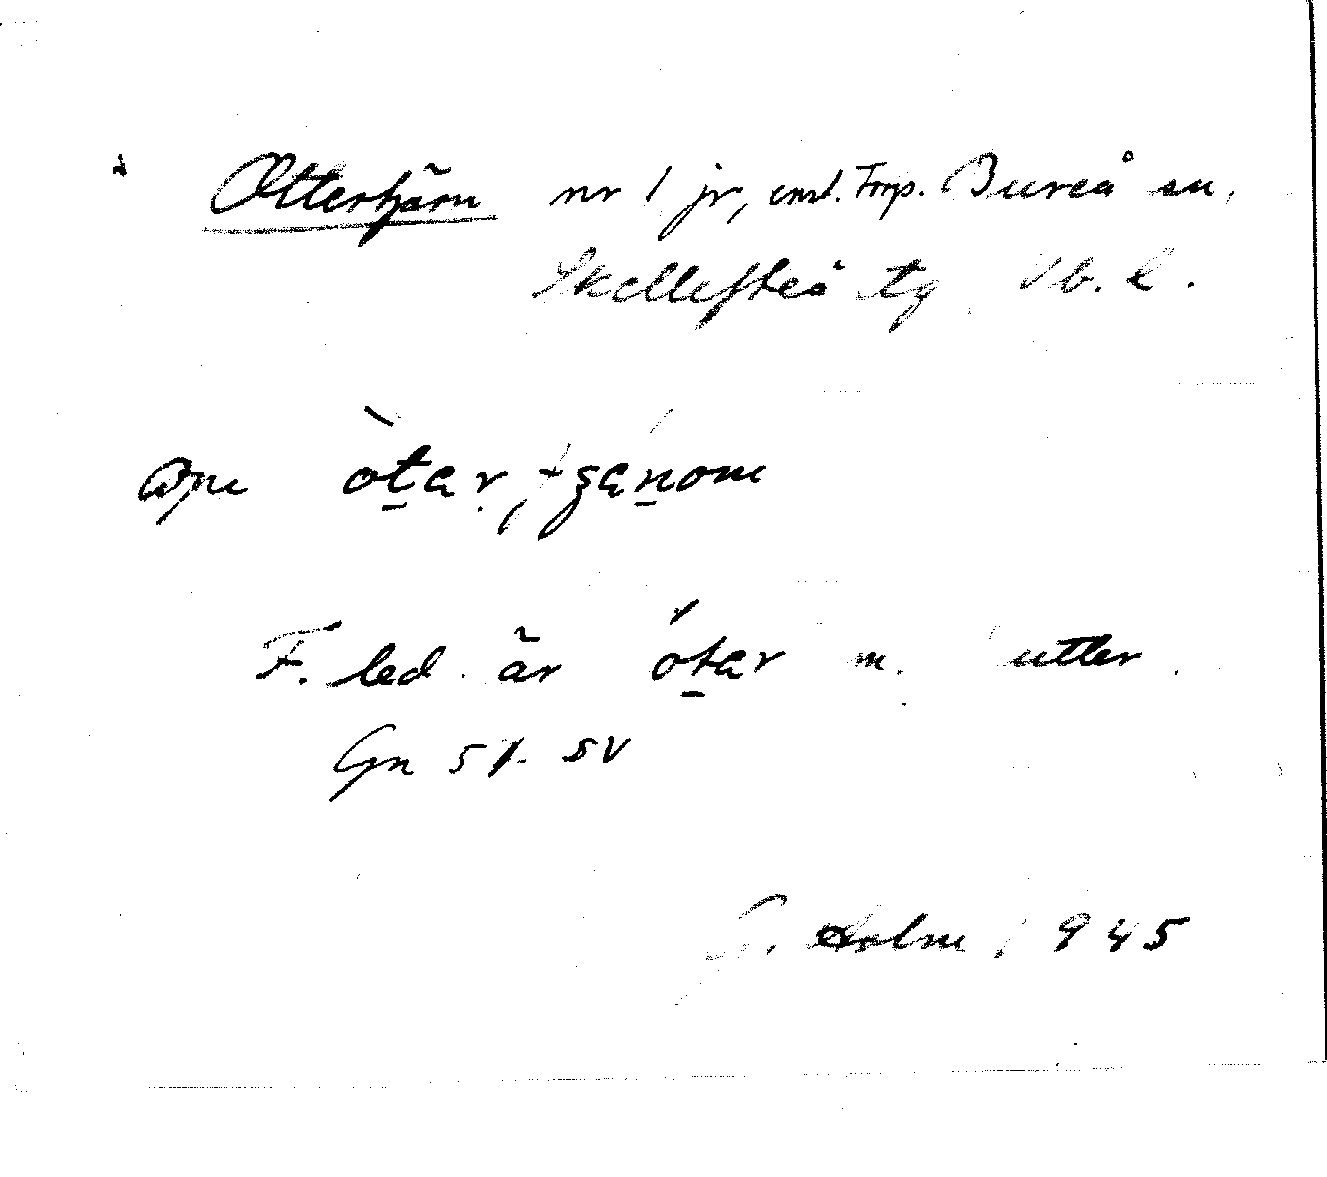 Ottertjärn nr 1 jr, enst. Tmp. Bureå sn,
Skellefteå tg Vb. l.
òtar, tjanom
F. led är ótar m. utter.
Gn 5% SV
G. Holm 1945